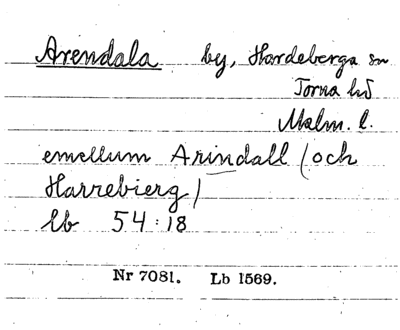 Arendala by, Hardeberga sn
Torna hd
Malm. l.
emellum Arindall (och
Harrebierg)
lb 54:18
Nr 7081. Lb 1569.